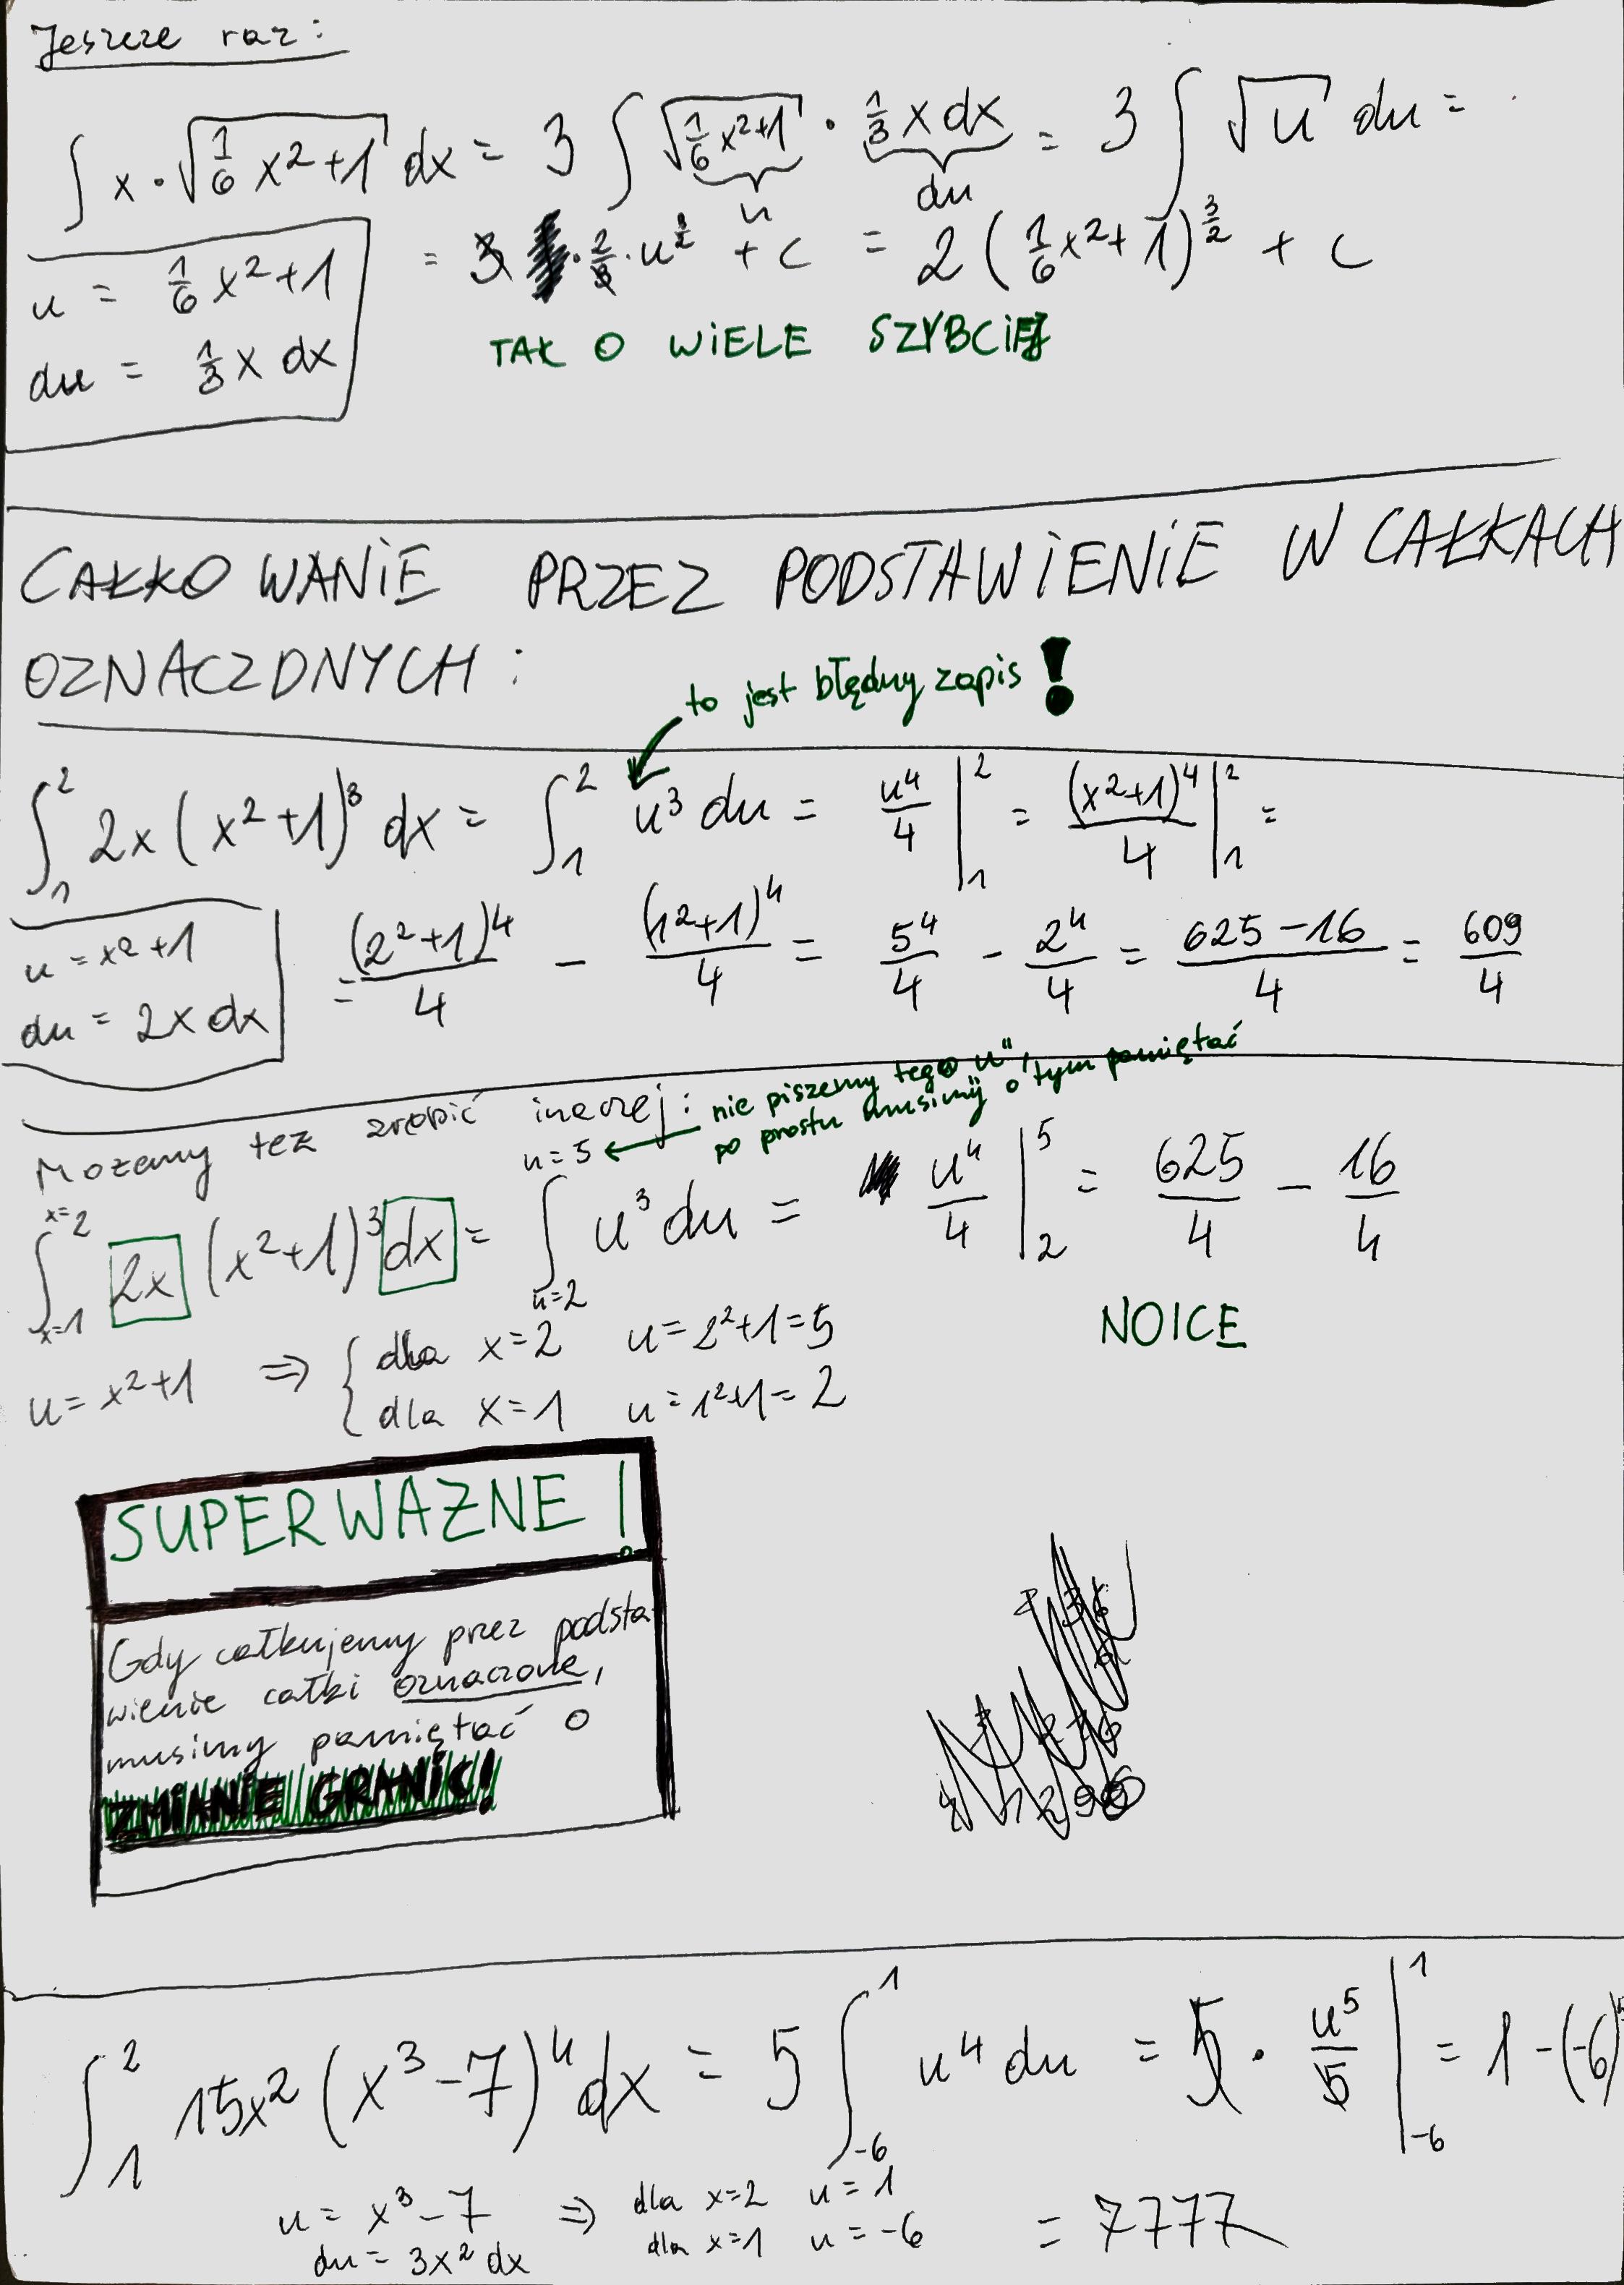 Jeszcze raz:
∫ x · √(1/6 x² + 1) dx = 3 ∫ √(1/6 x² + 1) · 1/3 x dx = 3 ∫ √u du =
u du
u = 1/6 x² + 1
du = 1/3 x dx
= 3 · 2/3 · u^(3/2) + c = 2 (1/6 x² + 1)^(3/2) + c
TAK O WIELE SZYBCIEJ
CAŁKOWANIE PRZEZ PODSTAWIENIE W CAŁKACH
OZNACZONYCH :
to jest błędny zapis !
∫₁² 2x (x² + 1)³ dx = ∫₁² u³ du = u⁴/4 |₁² = (x²+1)⁴/4 |₁² =
u = x² + 1
du = 2x dx
= (2²+1)⁴/4 − (1²+1)⁴/4 = 5⁴/4 - 2⁴/4 = (625 − 16)/4 = 609/4
Możemy też zrobić inaczej :
nie piszemy tego „u",
po prostu musimy o tym pamiętać
∫_{x=1}^{x=2} 2x (x²+1)³ dx = ∫_{u=2}^{u=5} u³ du = u⁴/4 |₂⁵ = 625/4 − 16/4
NOICE
u = x²+1 ⇒ { dla x=2 u = 2²+1 = 5
dla x=1 u = 1²+1 = 2
SUPERWAŻNE !
Gdy całkujemy przez podsta-
wienie całki oznaczone,
musimy pamiętać o
ZMIANIE GRANIC!
∫₁² 15x² (x³ - 7)⁴ dx = 5 ∫₋₆¹ u⁴ du = 5 · u⁵/5 |₋₆¹ = 1 - (-6)⁵
u = x³ - 7 ⇒ dla x=2 u = 1
du = 3x² dx dla x=1 u = -6
= 7777